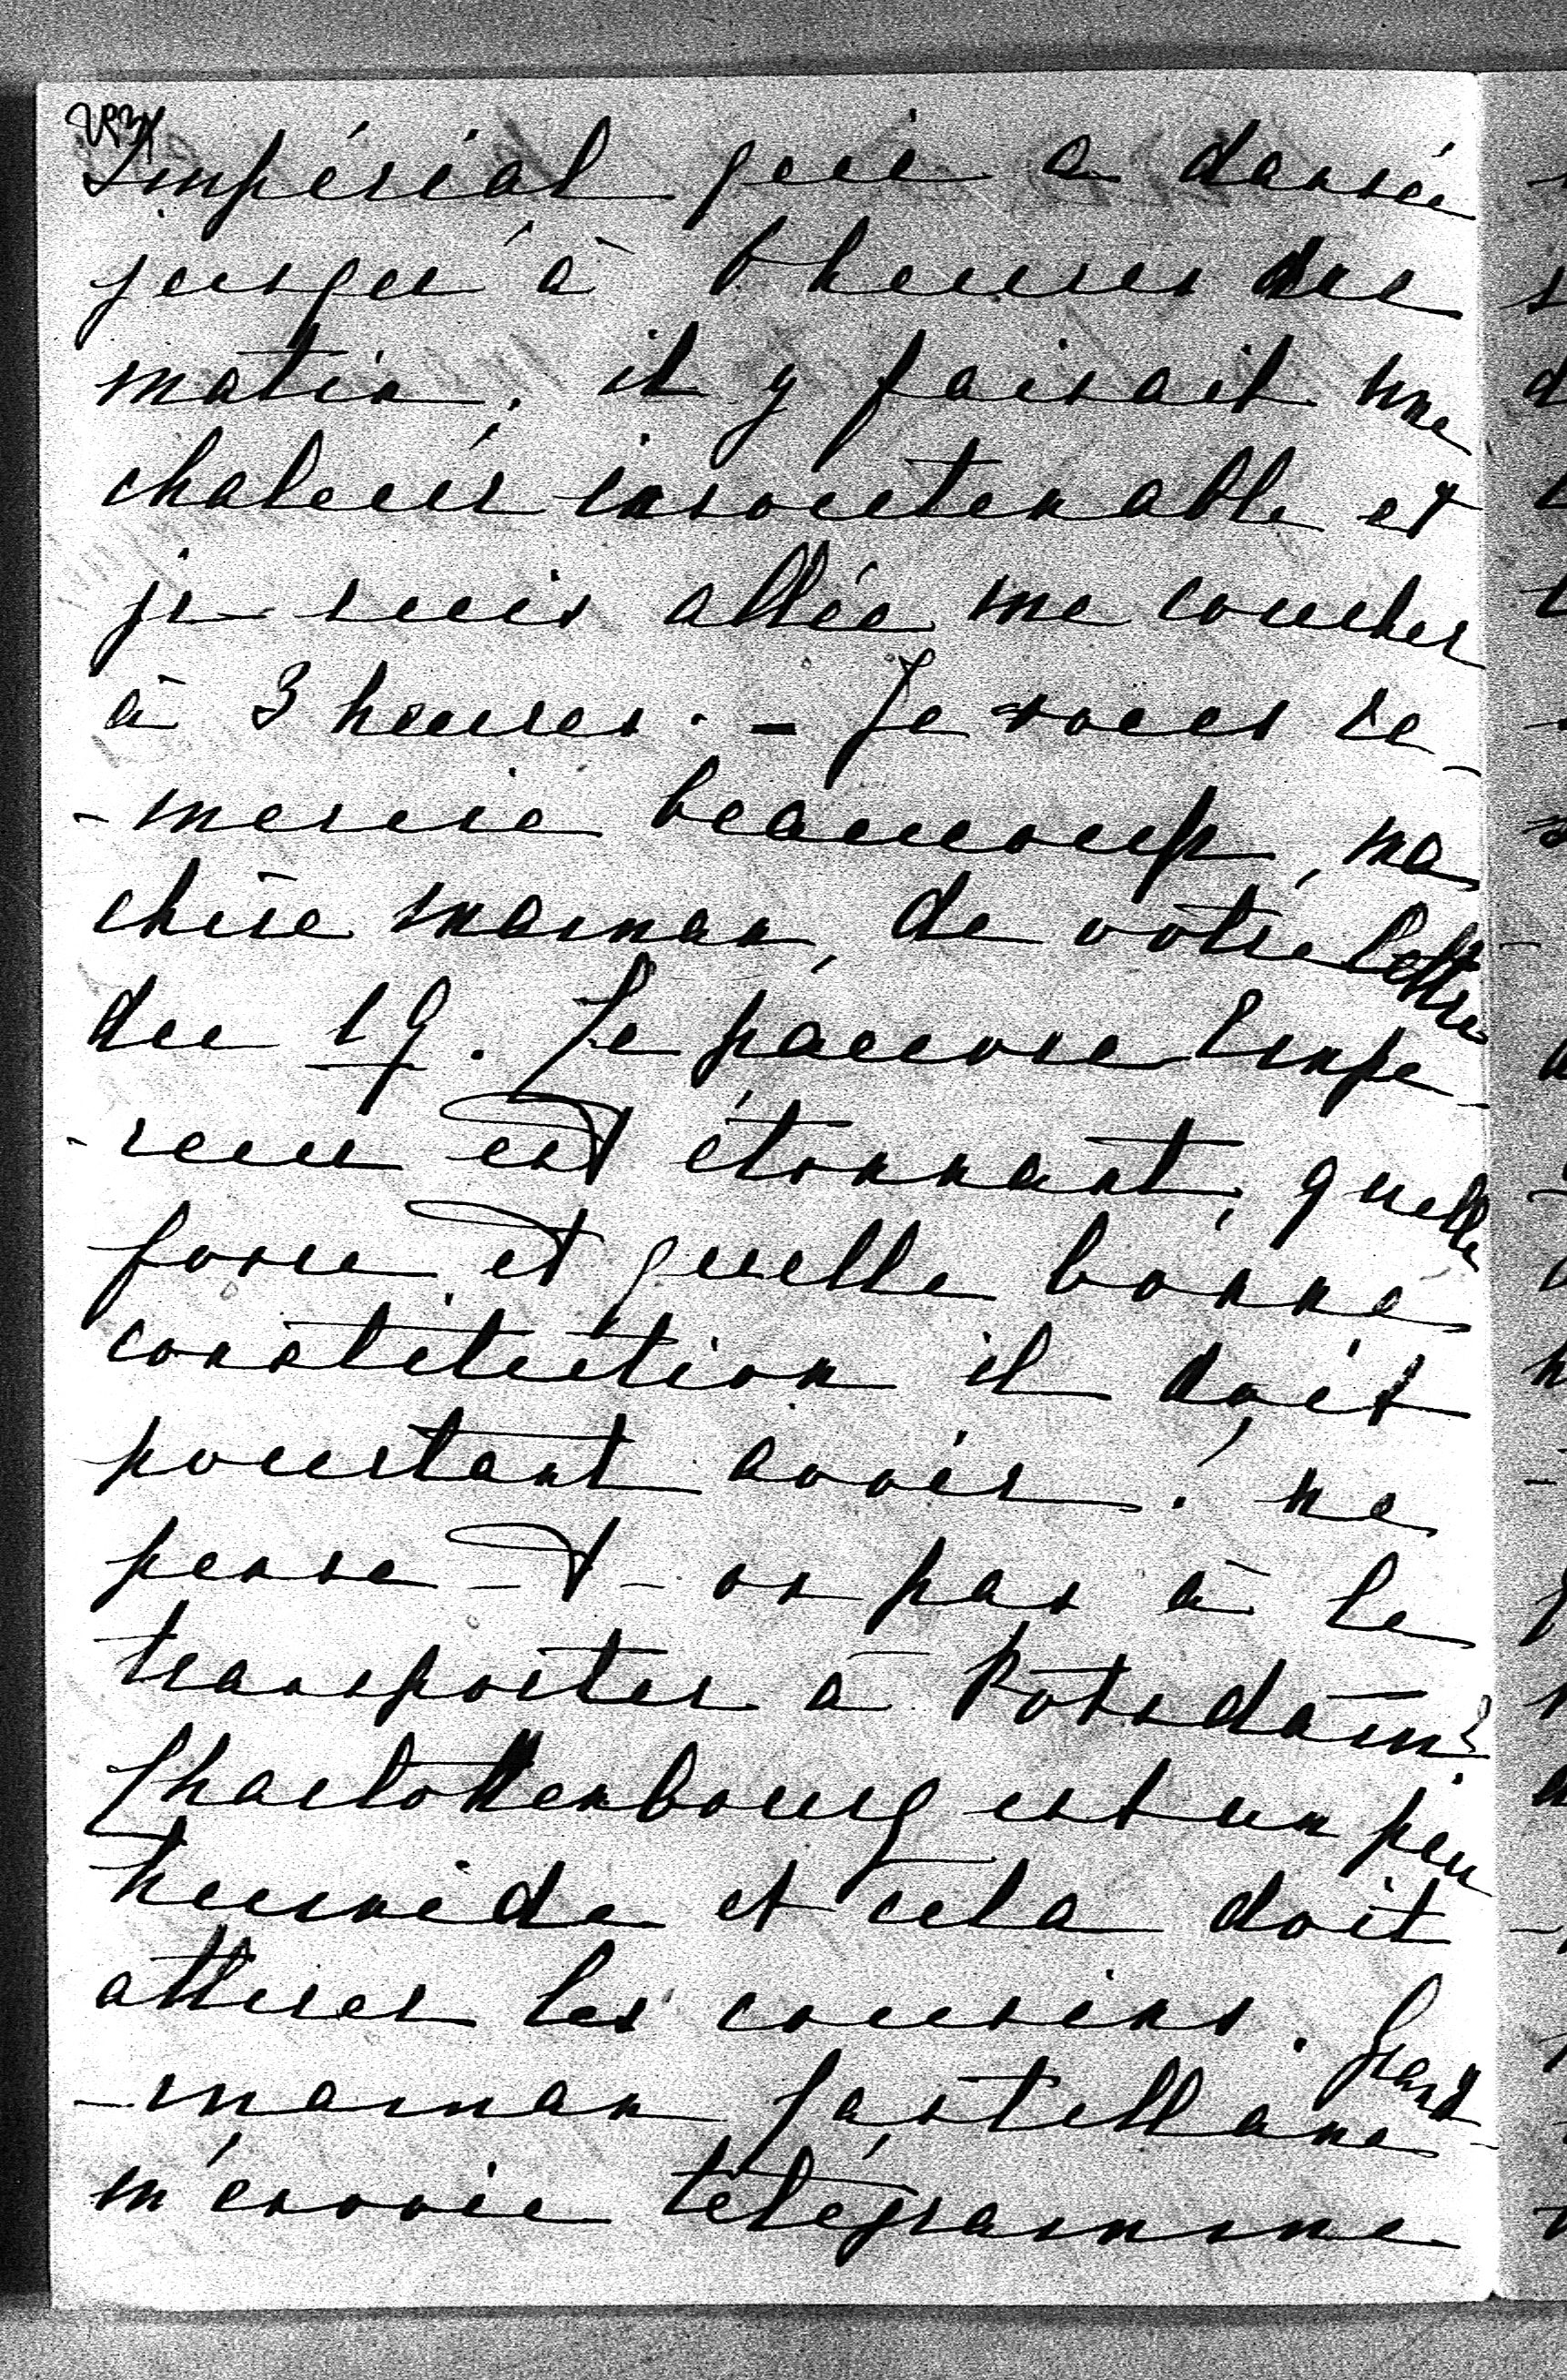 Impérial qui a dansée
jusqu'à 6 heures du
matin. il y faisait une
chaleur insoutenable et
je suis allée me coucher
à 3 heures. - Je vous re-
-mercie beaucoup, ma
chère maman, de votre lettre
du 19. Le pauvre Empe-
-reur est étonnant, quelle
force et quelle bonne
constitution il doit
pourtant avoir! ne
pense-t-on pas à le
transporter à Potsdam?
Charlottenbourg est un peu
humide et cela doit
attirer les cousins. Grand-
-maman Castellane
m'envoie télégramme